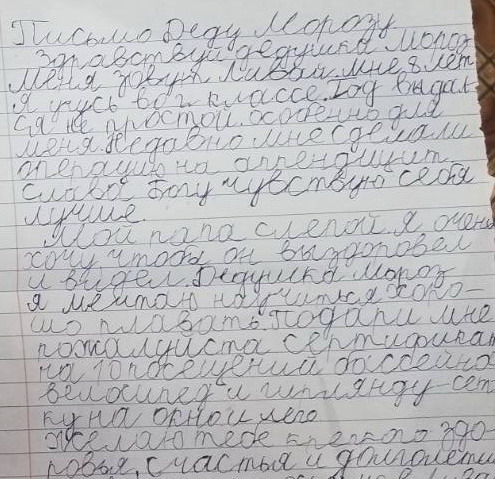 Письмо Деду Морозу
Здравствуй дедушка Мороз
Меня зовут Ливай мне 8 лет
Я учусь во 2 классе. Год выдал-
ся не простой, особенно для
меня. Недавно мне сделали
операцию на аппендицит
Слава Богу чувствую себя
лучше.
Мой папа слепой я очень
хочу, чтобы он выздоровел
и видел. Дедушка Мороз
я мечтаю научиться хоро-
шо плавать. Подари мне
пожалуйста сертификат
на 10 посещений бассейна
велосипед и гирлянду-сет
ку на окно и лего
Желаю тебе крепкого здо-
ровья, счастья и долголети